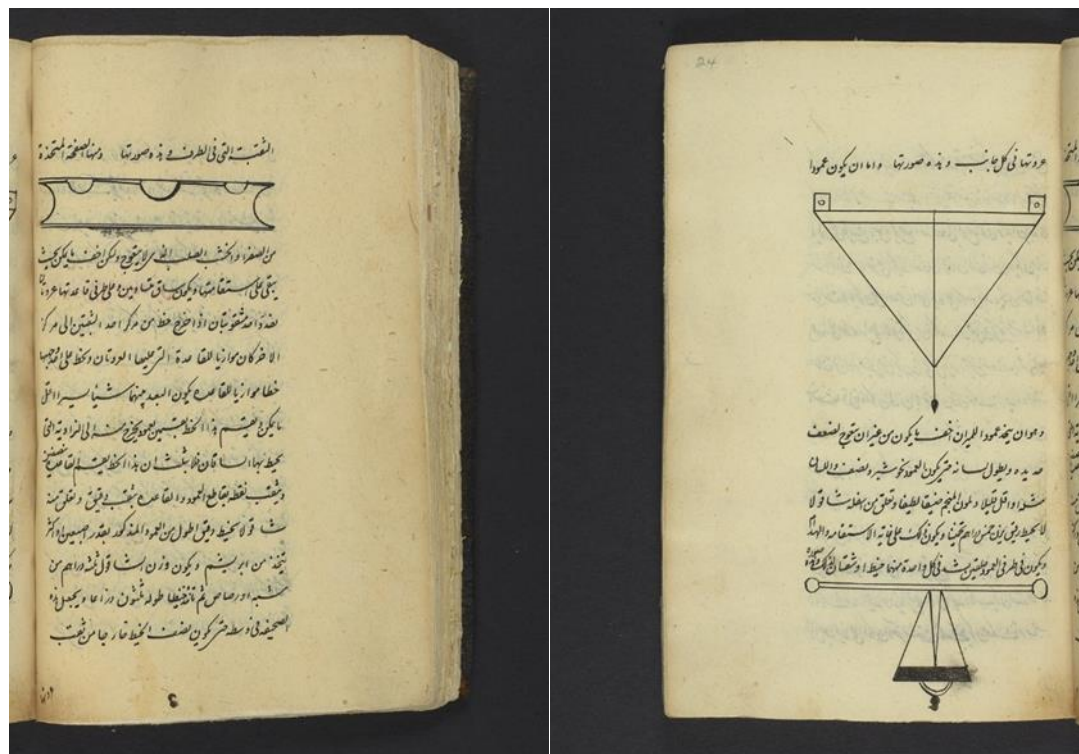 الثقبة التي في الطرف وهذه صورتها ومنها الصفحة المتخذة
من الصفر او الخشب الصلب الذي لا يتعوج ولكن اخف ما يكن بحيث
يبقى على استقامتها ويكون ساق متساويين وعلى طرفي قاعدتها عروتان
اذا خرج خط من مركز احد الثقبين الى مركز
الاخر كان موازيا للقاعدة التي عليها العروتان ويخط على احد وجهيها
خطا موازيا للقاعدة يكون البعد بينهما شيئا يسيرا اقل
ما يكن ويقسم هذا الخط بقسمين بعمود يخرج منه الى الزاوية التي
يحيط بها الساقان فلا شك ان هذا الخط يقسم القاعدة بنصفين
ويثقب نقطة تقاطع العمود والقاعدة بثقب دقيق ويعلق منه
شاقولا بخيط دقيق اطول من العمود المذكور بقدر اصبعين او اكثر
يتخذ من ابريشم ويكون وزن الشاقول ثلثة دراهم من
شبه او رصاص ثم تاخذ خيطا طوله ثلثون ذراعا ويجعل هذه
الصحيفة في وسطه حتى يكون نصف الخيط خارجا من ثقب
عروتها
24
عروتها في كل جانب وهذه صورتها واما ان يكون عمودا
وهو ان يتخذ عمود الميزان اخف ما يكون من غير ان يتعوج لضعف
حديده ويطول لسانه حتى يكون العمود نحو شبر ونصف واللسان
مثله او اقل قليلا ويكون المنجم ضيقا لطيفا ويعلق من سفله شاقولا
بخيط دقيق يزن خمس دراهم تخمينا ويكون ذلك على غاية الاستقامة
ويكون في طرفي العمود حلقتين يشد في كل واحدة منهما خيط